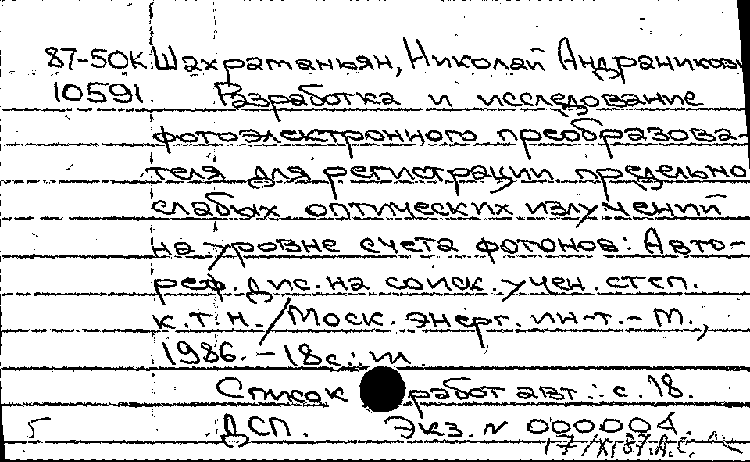 87-50К Шахраманьян, Николай Андраникови
10591 Разработка и исследование
фотоэлектронного преобразова-
теля для регистрации предельно
слабых оптических излучений
на уровне счета фотонов: Авто-
реф. дис. на соиск. учен. степ.
к.т.н. / Моск. энерг. ин-т. - М.,
1986. - 18с.: ил
Список работ авт.: с. 18.
ДСП. Экз. N 000004.
17/XI 87. А.С.